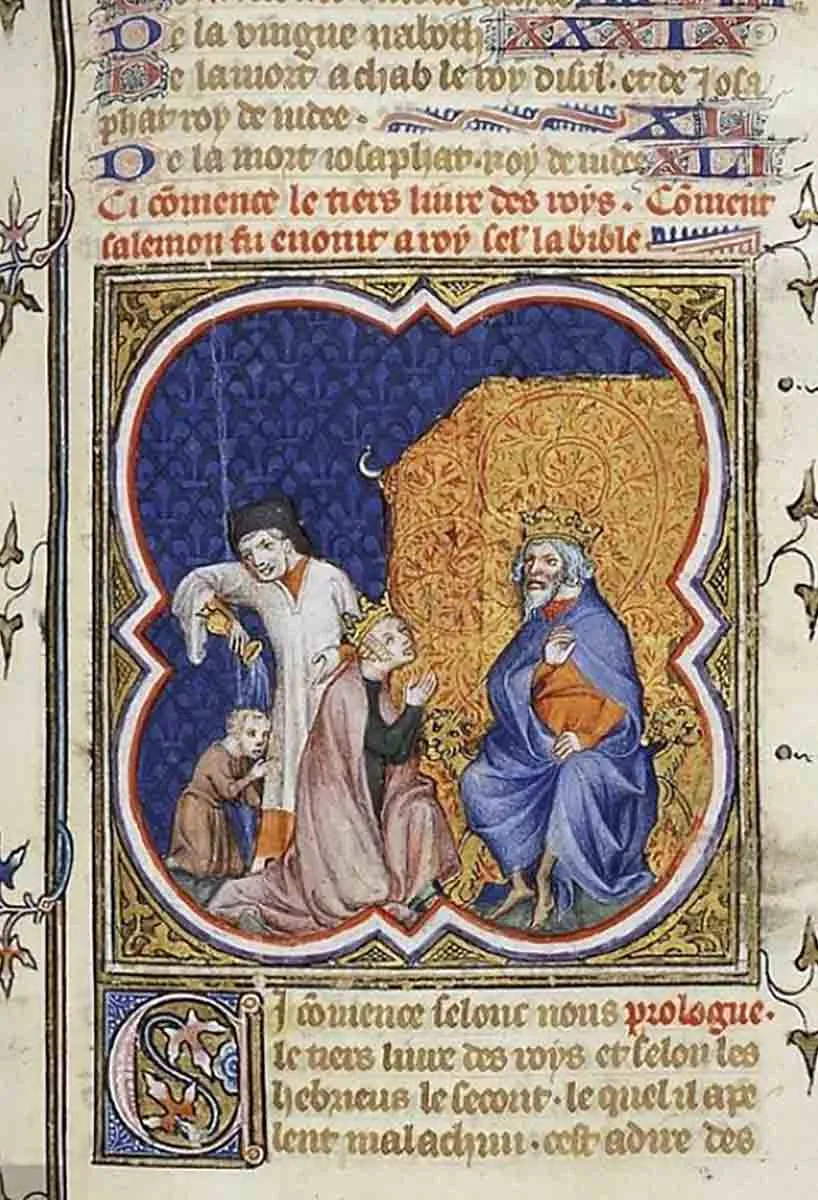 De la vingne naboth XXXIX
De la mort achab le roy disrl. et de Josa
phat roy de iudee. XL
De la mort iosaphat. roy de iudee XLI
Ci cōmence le tiers liure des roys. Cōment
salemon fu enoint a roy sel' la bible
Si cōmence selonc nous prologue.
le tiers liure des roys et selon les
hebrieus le secont. le quel il ape
lent malachim. cest a dire des